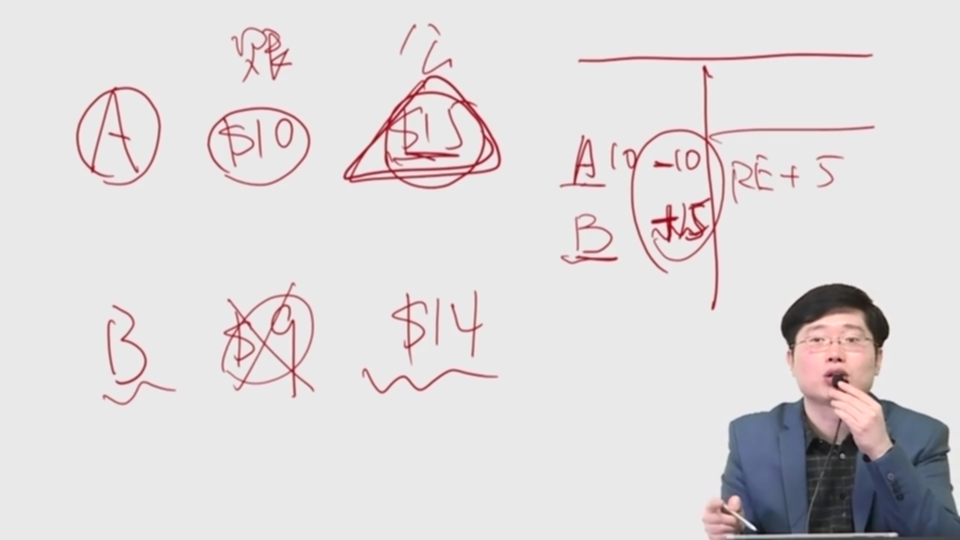 账 公
A $10 $15
B $9 $14
A 10 -10
B +15
RE + 5